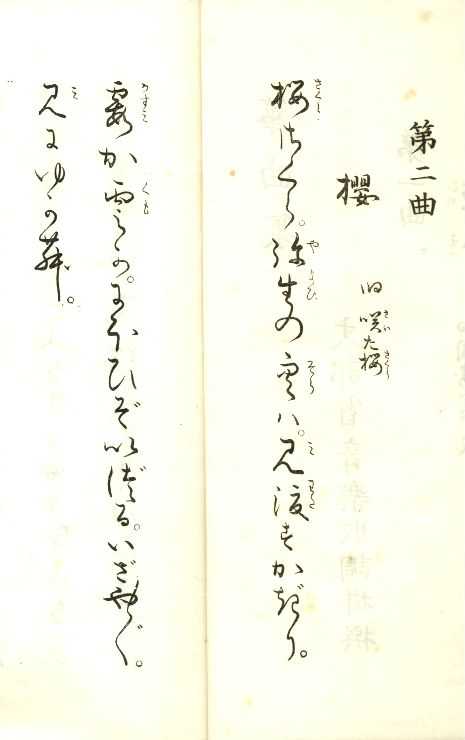 第二曲
櫻 旧 咲た桜
桜さくら。弥生の空ハ。見渡すかぎり。
霞か雲か。にほひぞいづる。いざや〱。
見にゆかむ。